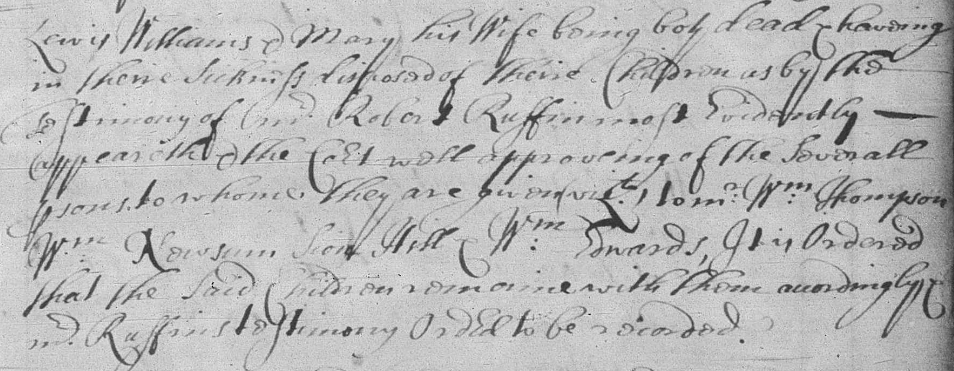 Lewis Williams & Mary his Wife being both dead & haveing
in theire Sickness disposed of theire Children as by the
testimony of mr. Robert Ruffin most Evidently —
appeareth & the Cort well approveing of the Severall
psons to whome they are given vizt. to mr. Wm. Thompson
Wm. Newsum Sion Hill & Wm. Edwards, It is Ordered
that the said Children remaine with them accordingly &
mr. Ruffins testimony Ordd to be recorded.